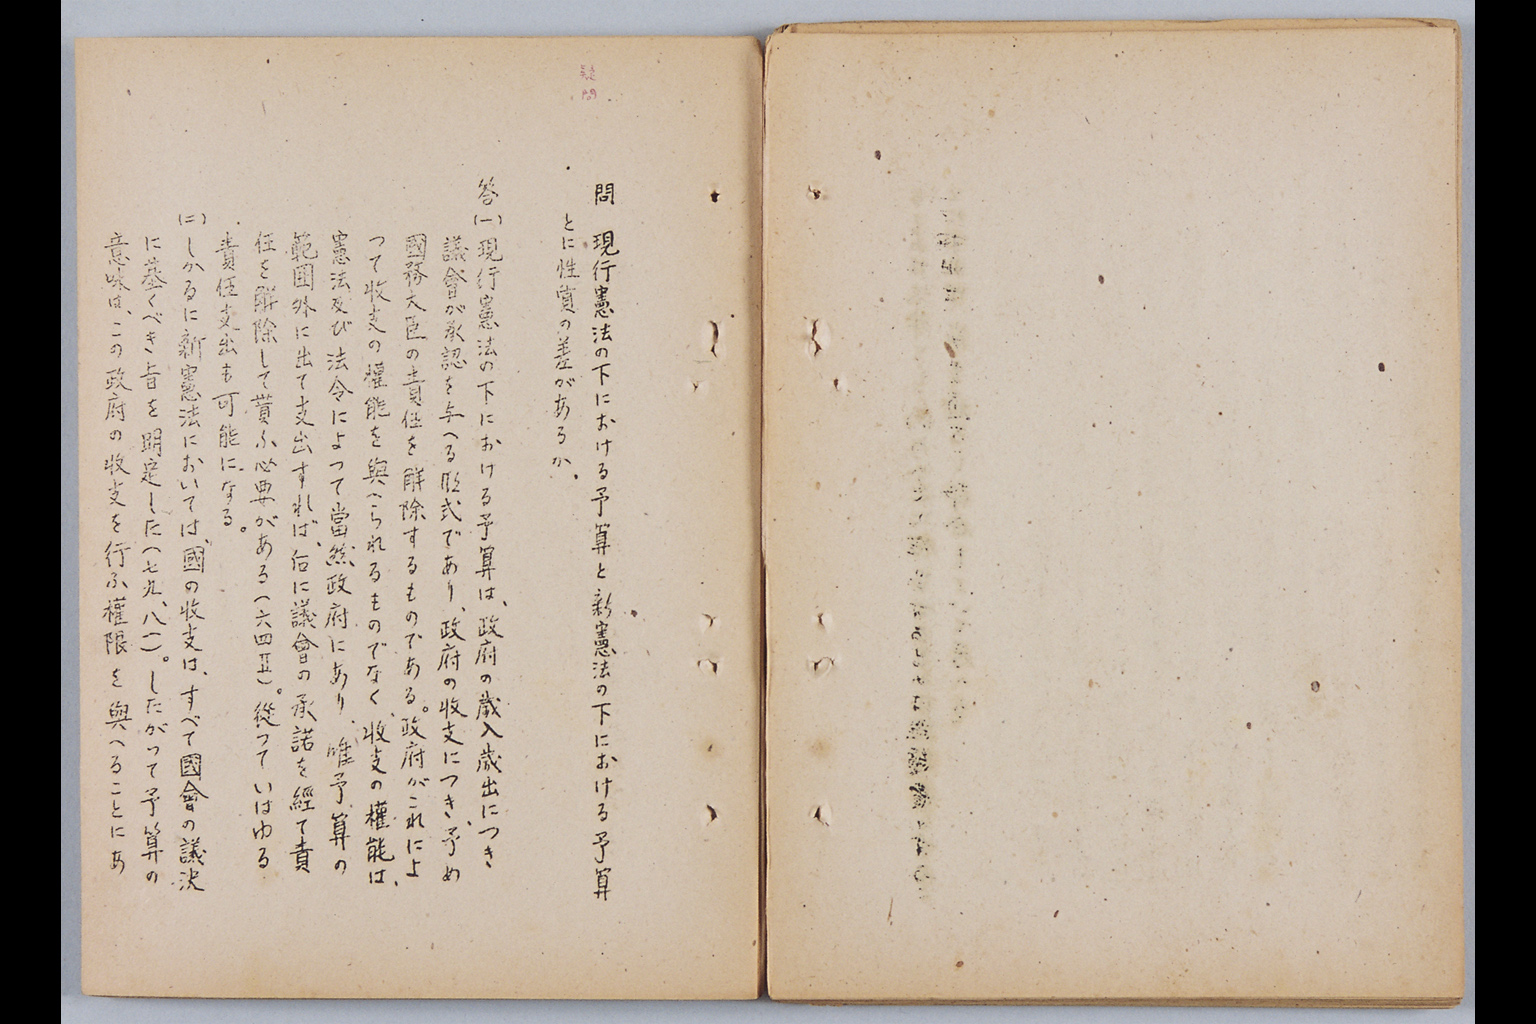 疑問
問 現行憲法の下における予算と新憲法の下における予算
とに性質の差があるか。
答(一)現行憲法の下における予算は、政府の歳入歳出につき
議會が承認を与へる形式であり、政府の收支につき、予め
國務大臣の責任を解除するものである。政府がこれによ
つて收支の權能を與へられるものでなく、收支の權能は、
憲法及び法令によつて當然政府にあり、唯予算の
範囲外に出て支出すれば、后に議會の承諾を經て責
任を解除して貰ふ必要がある(六四Ⅱ)。從つていはゆる
責任支出も可能になる。
(二)しかるに新憲法においては、國の收支は、すべて國會の議決
に基くべき旨を明定した(七九、八一)。したがつて予算の
意味は、この政府の收支を行ふ權限を與へることにあ